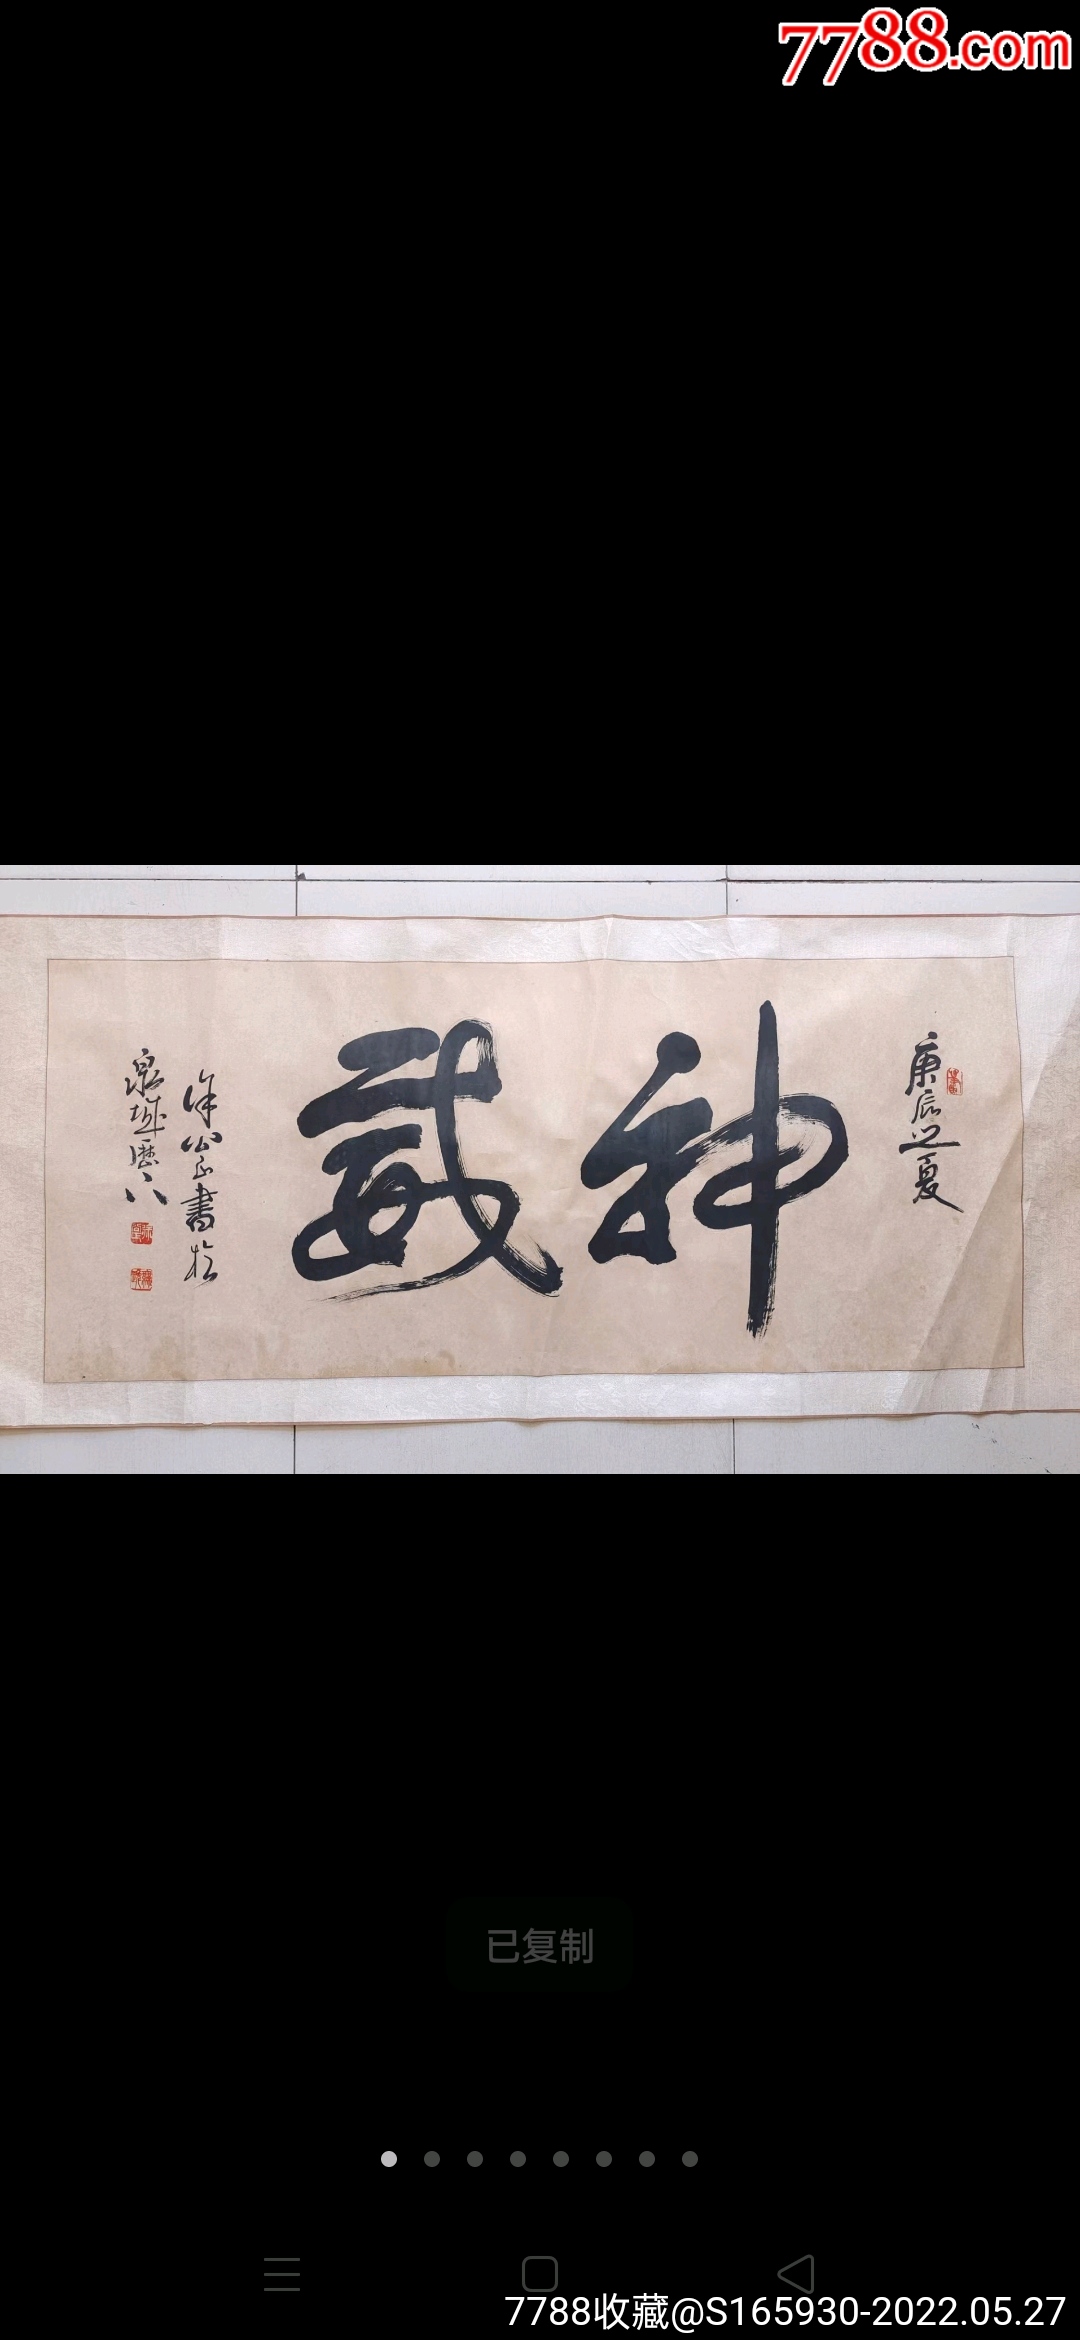 7788.com
庚辰之夏
神威
徐 書於
泉城歷下
已复制
7788收藏@S165930-2022.05.27